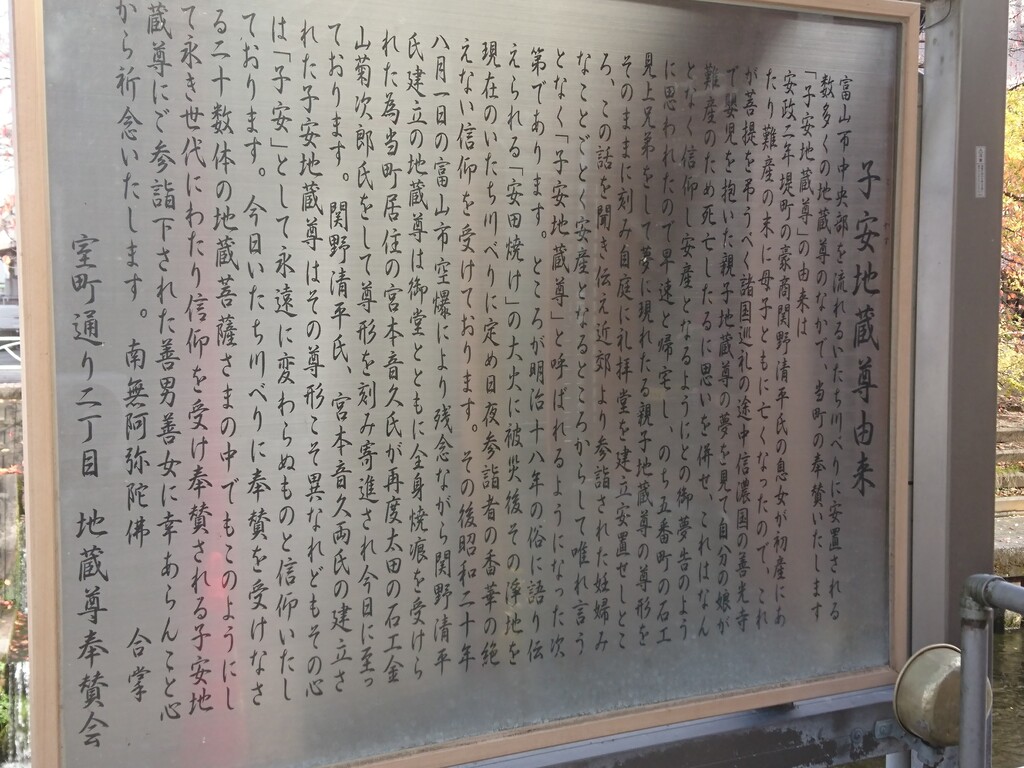 子安地蔵尊由来
富山市中央部を流れるいたち川べりに安置される
数多くの地蔵尊のなかで、当町の奉賛いたします
「子安地蔵尊」の由来は
安政二年堤町の豪商関野清平氏の息女が初産にあ
たり難産の末に母子ともに亡くなったので、これ
が菩提を弔うべく諸国巡礼の途中信濃国の善光寺
で嬰児を抱いた親子地蔵尊の夢を見て自分の娘が
難産のため死亡したるに思いを併せ、これはなん
となく信仰し安産となるようにとの御夢告のよう
に思われたので早速と婦宅し、のち五番町の石工
見上兄弟をして夢に現れたる親子地蔵尊の尊形を
そのままに刻み自庭に礼拝堂を建立安置せしとこ
ろ、この話を聞き伝え近郊より参詣された妊婦み
なことごとく安産となるところからして唯れ言う
となく「子安地蔵尊」と呼ばれるようになった次
第であります。ところが明治十八年の俗に語り伝
えられる「安田焼け」の大火に被災後その浄地を
現在のいたち川べりに定め日夜参詣者の香華の絶
えない信仰を受けております。その後昭和二十年
八月一日の富山市空爆により残念ながら関野清平
氏建立の地蔵尊は御堂とともに全身焼痕を受けら
れた為当町居住の宮本音久氏が再度太田の石工金
山菊次郎氏をして尊形を刻み寄進され今日に至っ
ております。関野清平氏、宮本音久両氏の建立さ
れた子安地蔵尊はその尊形こそ異なれどもその心
は「子安」として永遠に変わらぬものと信仰いたし
ております。今日いたち川べりに奉賛を受けなさ
る二十数体の地蔵菩薩さまの中でもこのようにし
て永き世代にわたり信仰を受け奉賛される子安地
蔵尊にご参詣下された善男善女に幸あらんこと心
から祈念いたします。南無阿弥陀佛 合掌
室町通り二丁目 地蔵尊奉賛会